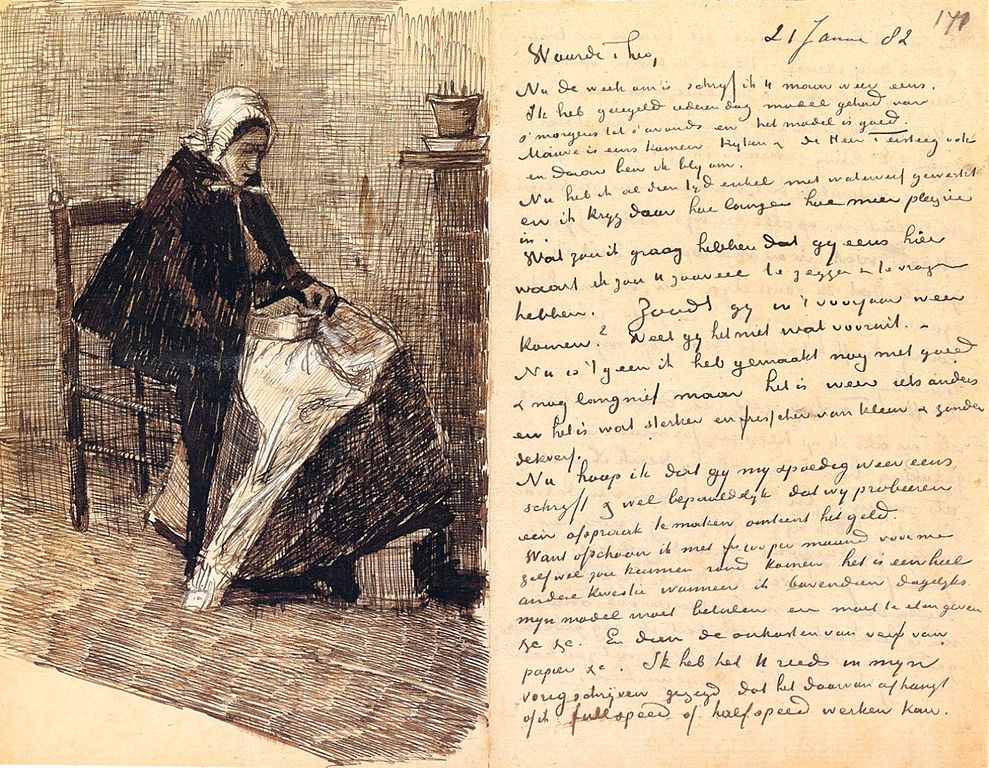 171
21 Januar 82
Waarde Theo,
Nu de week om is schrijf ik U maar weer eens.
Ik heb geregeld iederen dag model gehad van
s'morgens tot s'avonds en het model is goed.
Mauve is eens komen kijken & de Heer Tersteeg ook
en daar ben ik blij om.
Nu heb ik al dien tijd enkel met waterverf gewerkt
en ik krijg daar hoe langer hoe meer pleizier
in.
Wat zou ik graag hebben dat gij eens hier
waart ik zou U zooveel te zeggen & te vragen
hebben. Zoudt gij in 't voorjaar weer
komen? Weet gij het niet wat vooruit. –
Nu is 't geen ik heb gemaakt nog niet goed
& nog lang niet maar het is weer iets anders
en het is wat sterker en frisscher van kleur & zonder
dekverf.
Nu hoop ik dat gij mij spoedig weer eens
schrijft & wel bepaaldelijk dat wij probeeren
een afspraak te maken omtrent het geld.
Want ofschoon ik met fr 100 per maand voor me
zelf wel zou kunnen rond komen het is een heel
andere kwestie wanneer ik bovendien dagelijks
mijn model moet betalen en moet te eten geven
&c &c. En dien de onkosten van verf van
papier &c. Ik heb het U reeds in mijn
vorig schrijven gezegd dat het daarvan afhangt
of ik full speed of half speed werken kan.